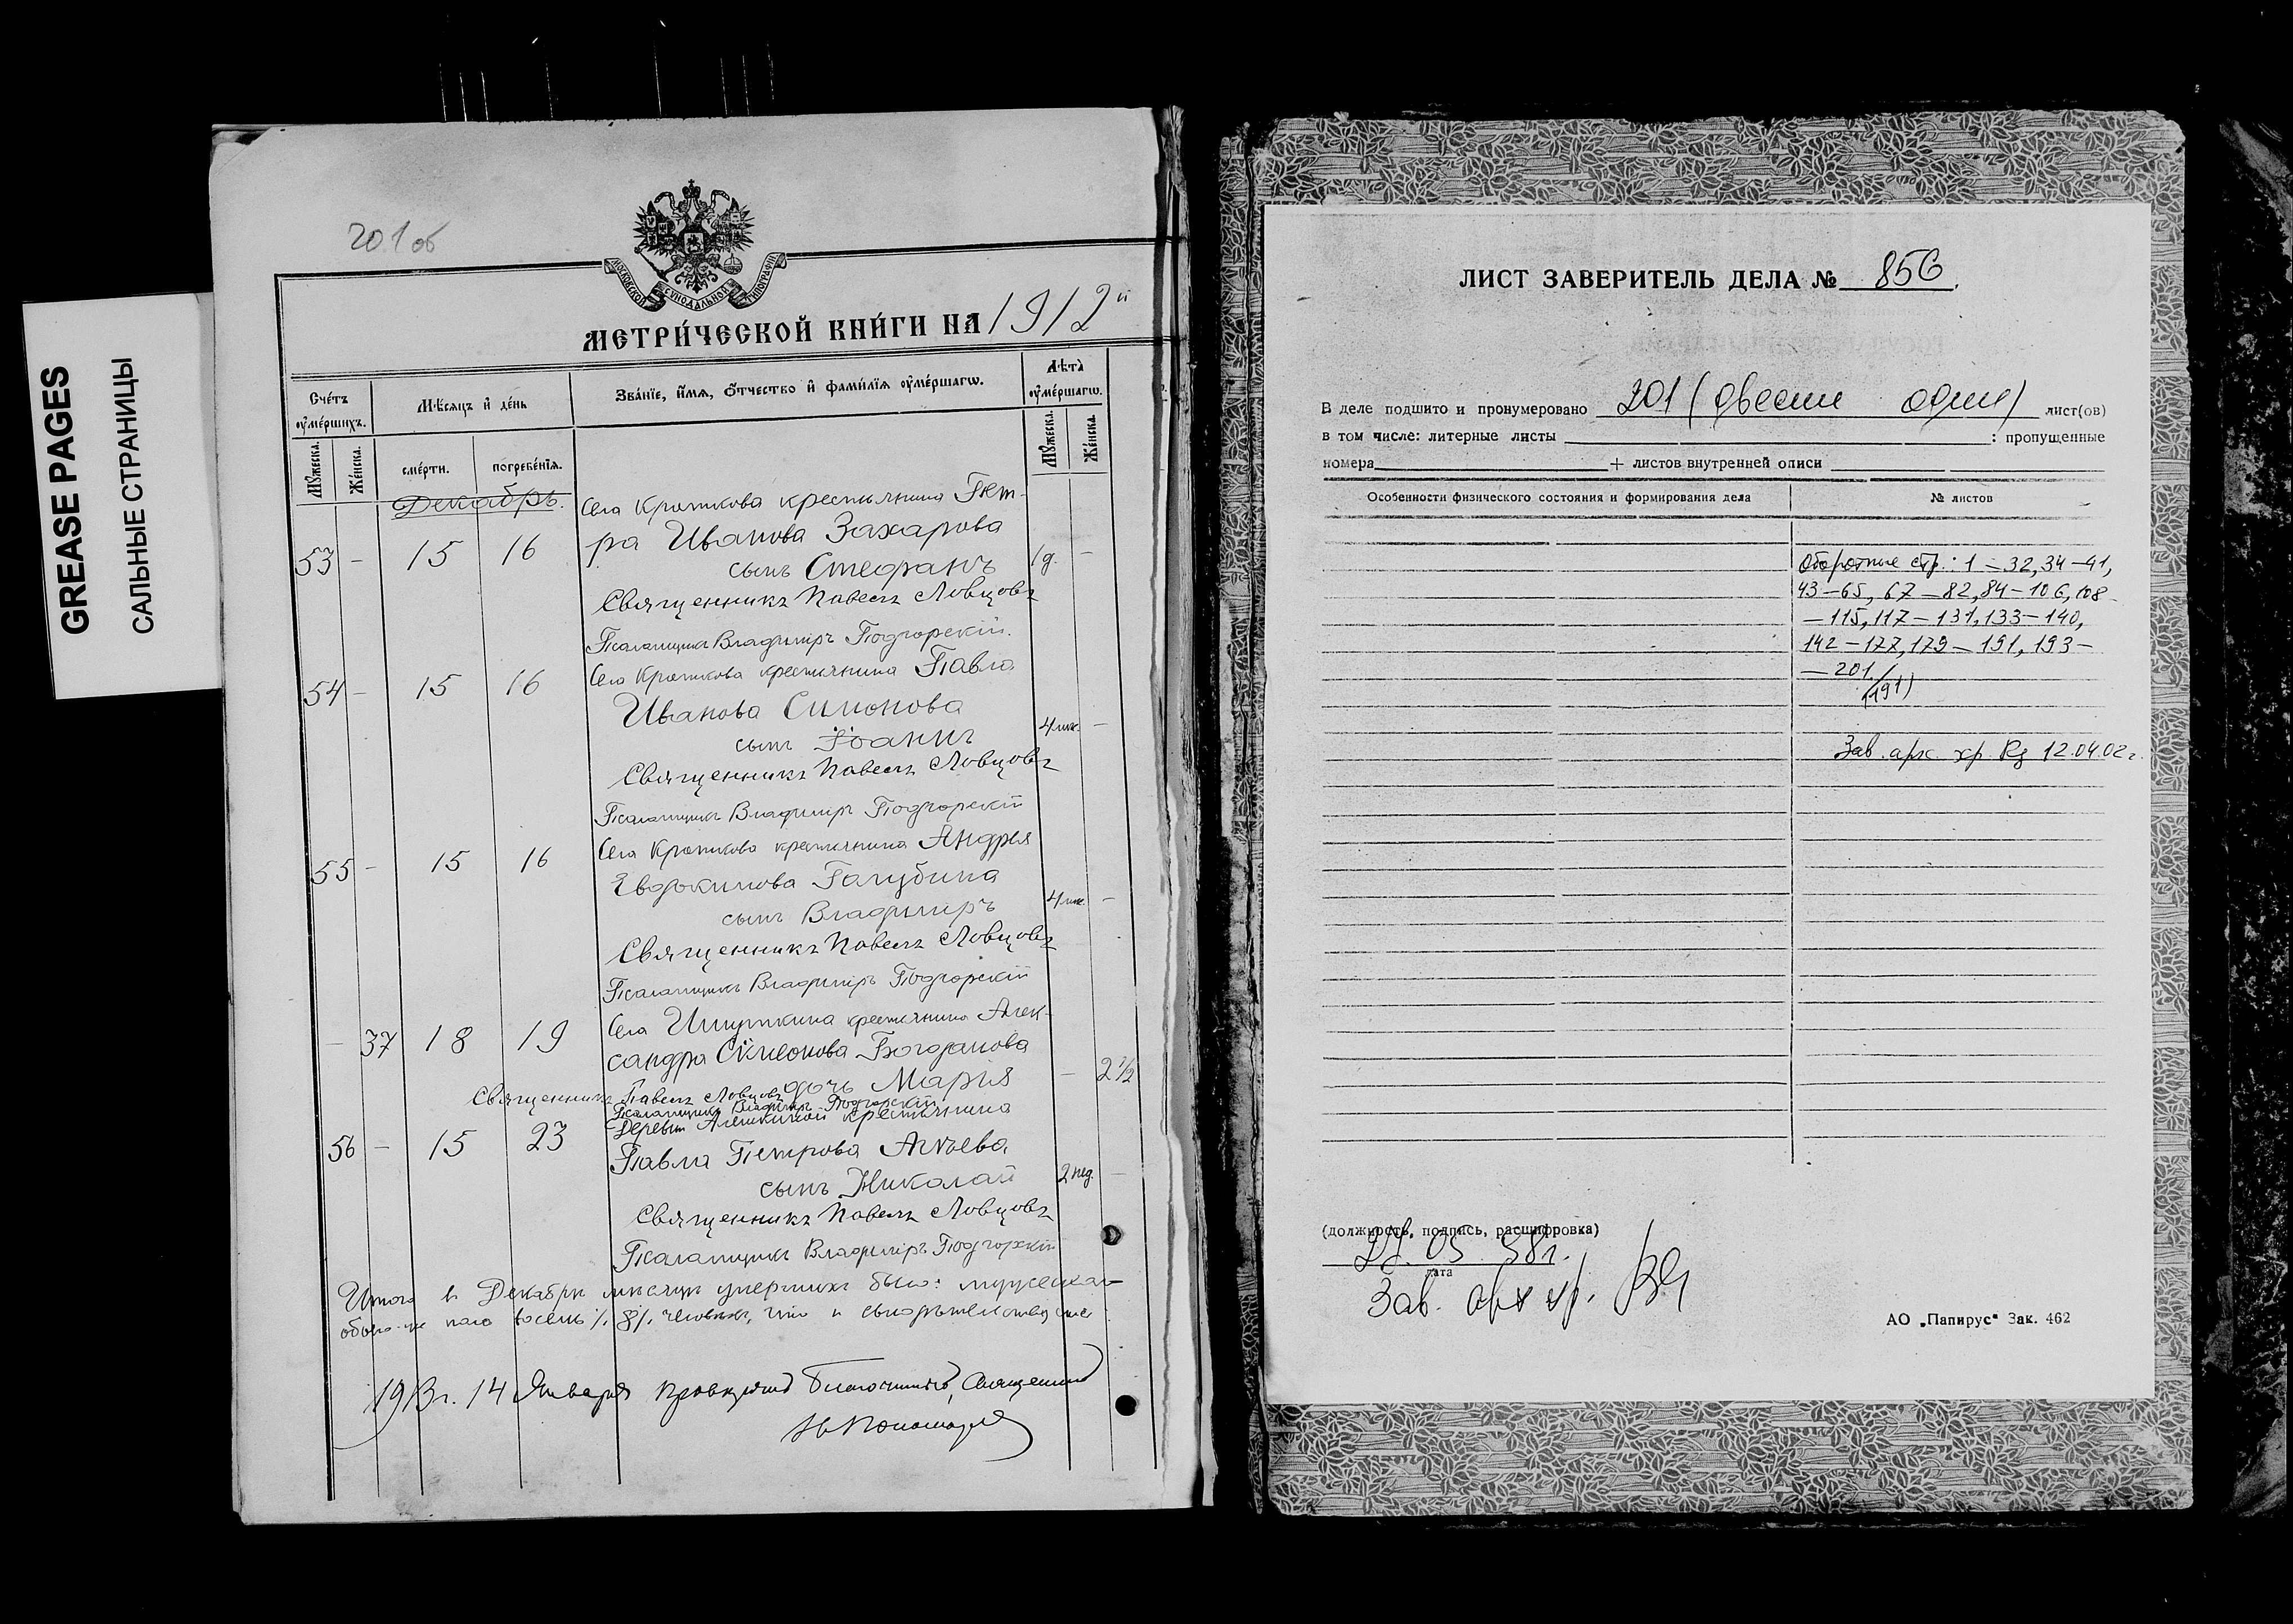 GREASE PAGES
САЛЬНЫЕ СТРАНИЦЫ
201 об
МОСКОВСКОЙ СѴНОДАЛЬНОЙ ТИПОГРАФІИ
МЕТРИ́ЧЕСКОЙ КНИ́ГИ НА 1912 й
Счéтъ ᲂу҆мéршихъ.
Мѣ́сяцъ и҆ дéнь
Звáнїе, и҆́мя, ѻ҆́тчество и҆ фами́лїя ᲂу҆мéршагѡ.
Лѣ́та ᲂу҆мéршагѡ.
Мꙋ́жеска. Жéнска. смéрти. погребéнїѧ. Мꙋ́жеска. Жéнска.
Декабрь.
Села Кроткова крестьянина Пет-
53 - 15 16 ра Иванова Захарова
сынъ Стефанъ 1 г. -
Священникъ Павелъ Ловцовъ
Псаломщикъ Владиміръ Подгорскій.
54 - 15 16 Села Кроткова крестьянина Павла
Иванова Симонова
сынъ Іоаннъ 4 мѣс. -
Священникъ Павелъ Ловцовъ
Псаломщикъ Владиміръ Подгорскій
55 - 15 16 Села Кроткова крестьянина Андрея
Евдокимова Голубина
сынъ Владиміръ 4 мѣс. -
Священникъ Павелъ Ловцовъ
Псаломщикъ Владиміръ Подгорскій
- 37 18 19 Села крестьянина Алек-
сандра Симеонова Богданова
дочь Марія - 2 1/2
Священникъ Павелъ Ловцовъ
Псаломщикъ Владиміръ Подгорскій
Деревни Алешкиной крестьянина
56 - 15 23 Павла Петрова
сынъ Николай 2 нед. -
Священникъ Павелъ Ловцовъ
Псаломщикъ Владиміръ Подгорскій
Итого въ Декабрѣ мѣсяцѣ умершихъ было: мужеска-
обоего пола восемь /8/ человѣкъ, что и свидѣтельствуемъ
1913 г. 14 Января Благочинный, Священникъ
ЛИСТ ЗАВЕРИТЕЛЬ ДЕЛА № 856
В деле подшито и пронумеровано 201 (двести один) лист(ов)
в том числе: литерные листы ; пропущенные
номера + листов внутренней описи
Особенности физического состояния и формирования дела
№ листов
Оборотные стр.: 1 – 32, 34 – 41,
43 – 65, 67 – 82, 84 – 106, 108 –
– 115, 117 – 131, 133 – 140,
142 – 177, 179 – 191, 193 –
– 201.
(191)
Зав. арх. хр. 12.04.02 г.
(должность, подпись, расшифровка)
05 98 г.
дата
Зав. арх хр.
АО „Папирус“ Зак. 462